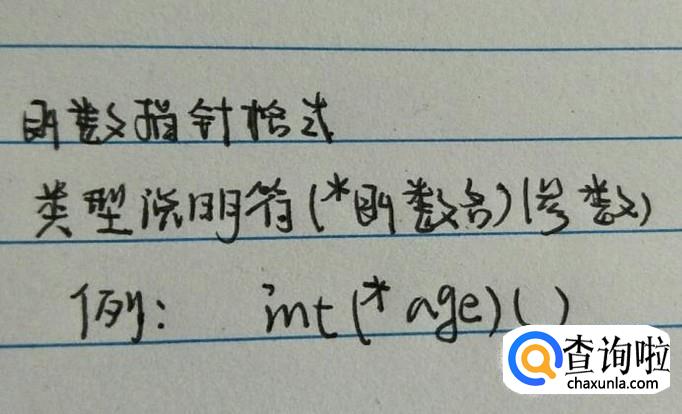 函数指针格式
类型说明符(*函数名)(参数)
例: int(*age)()
查询啦
chaxunla.com